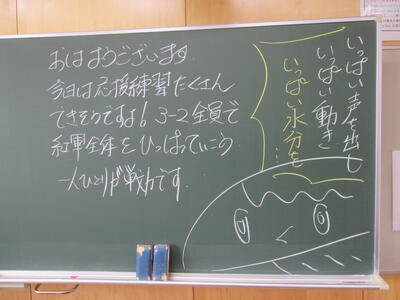 おはようございます
今日は応援練習たくさん
できそうですよ! 3-2全員で
紅軍全体をひっぱっていこう
一人ひとりが戦力です
いっぱい声を出し
いっぱい動き
いっぱい水分を…